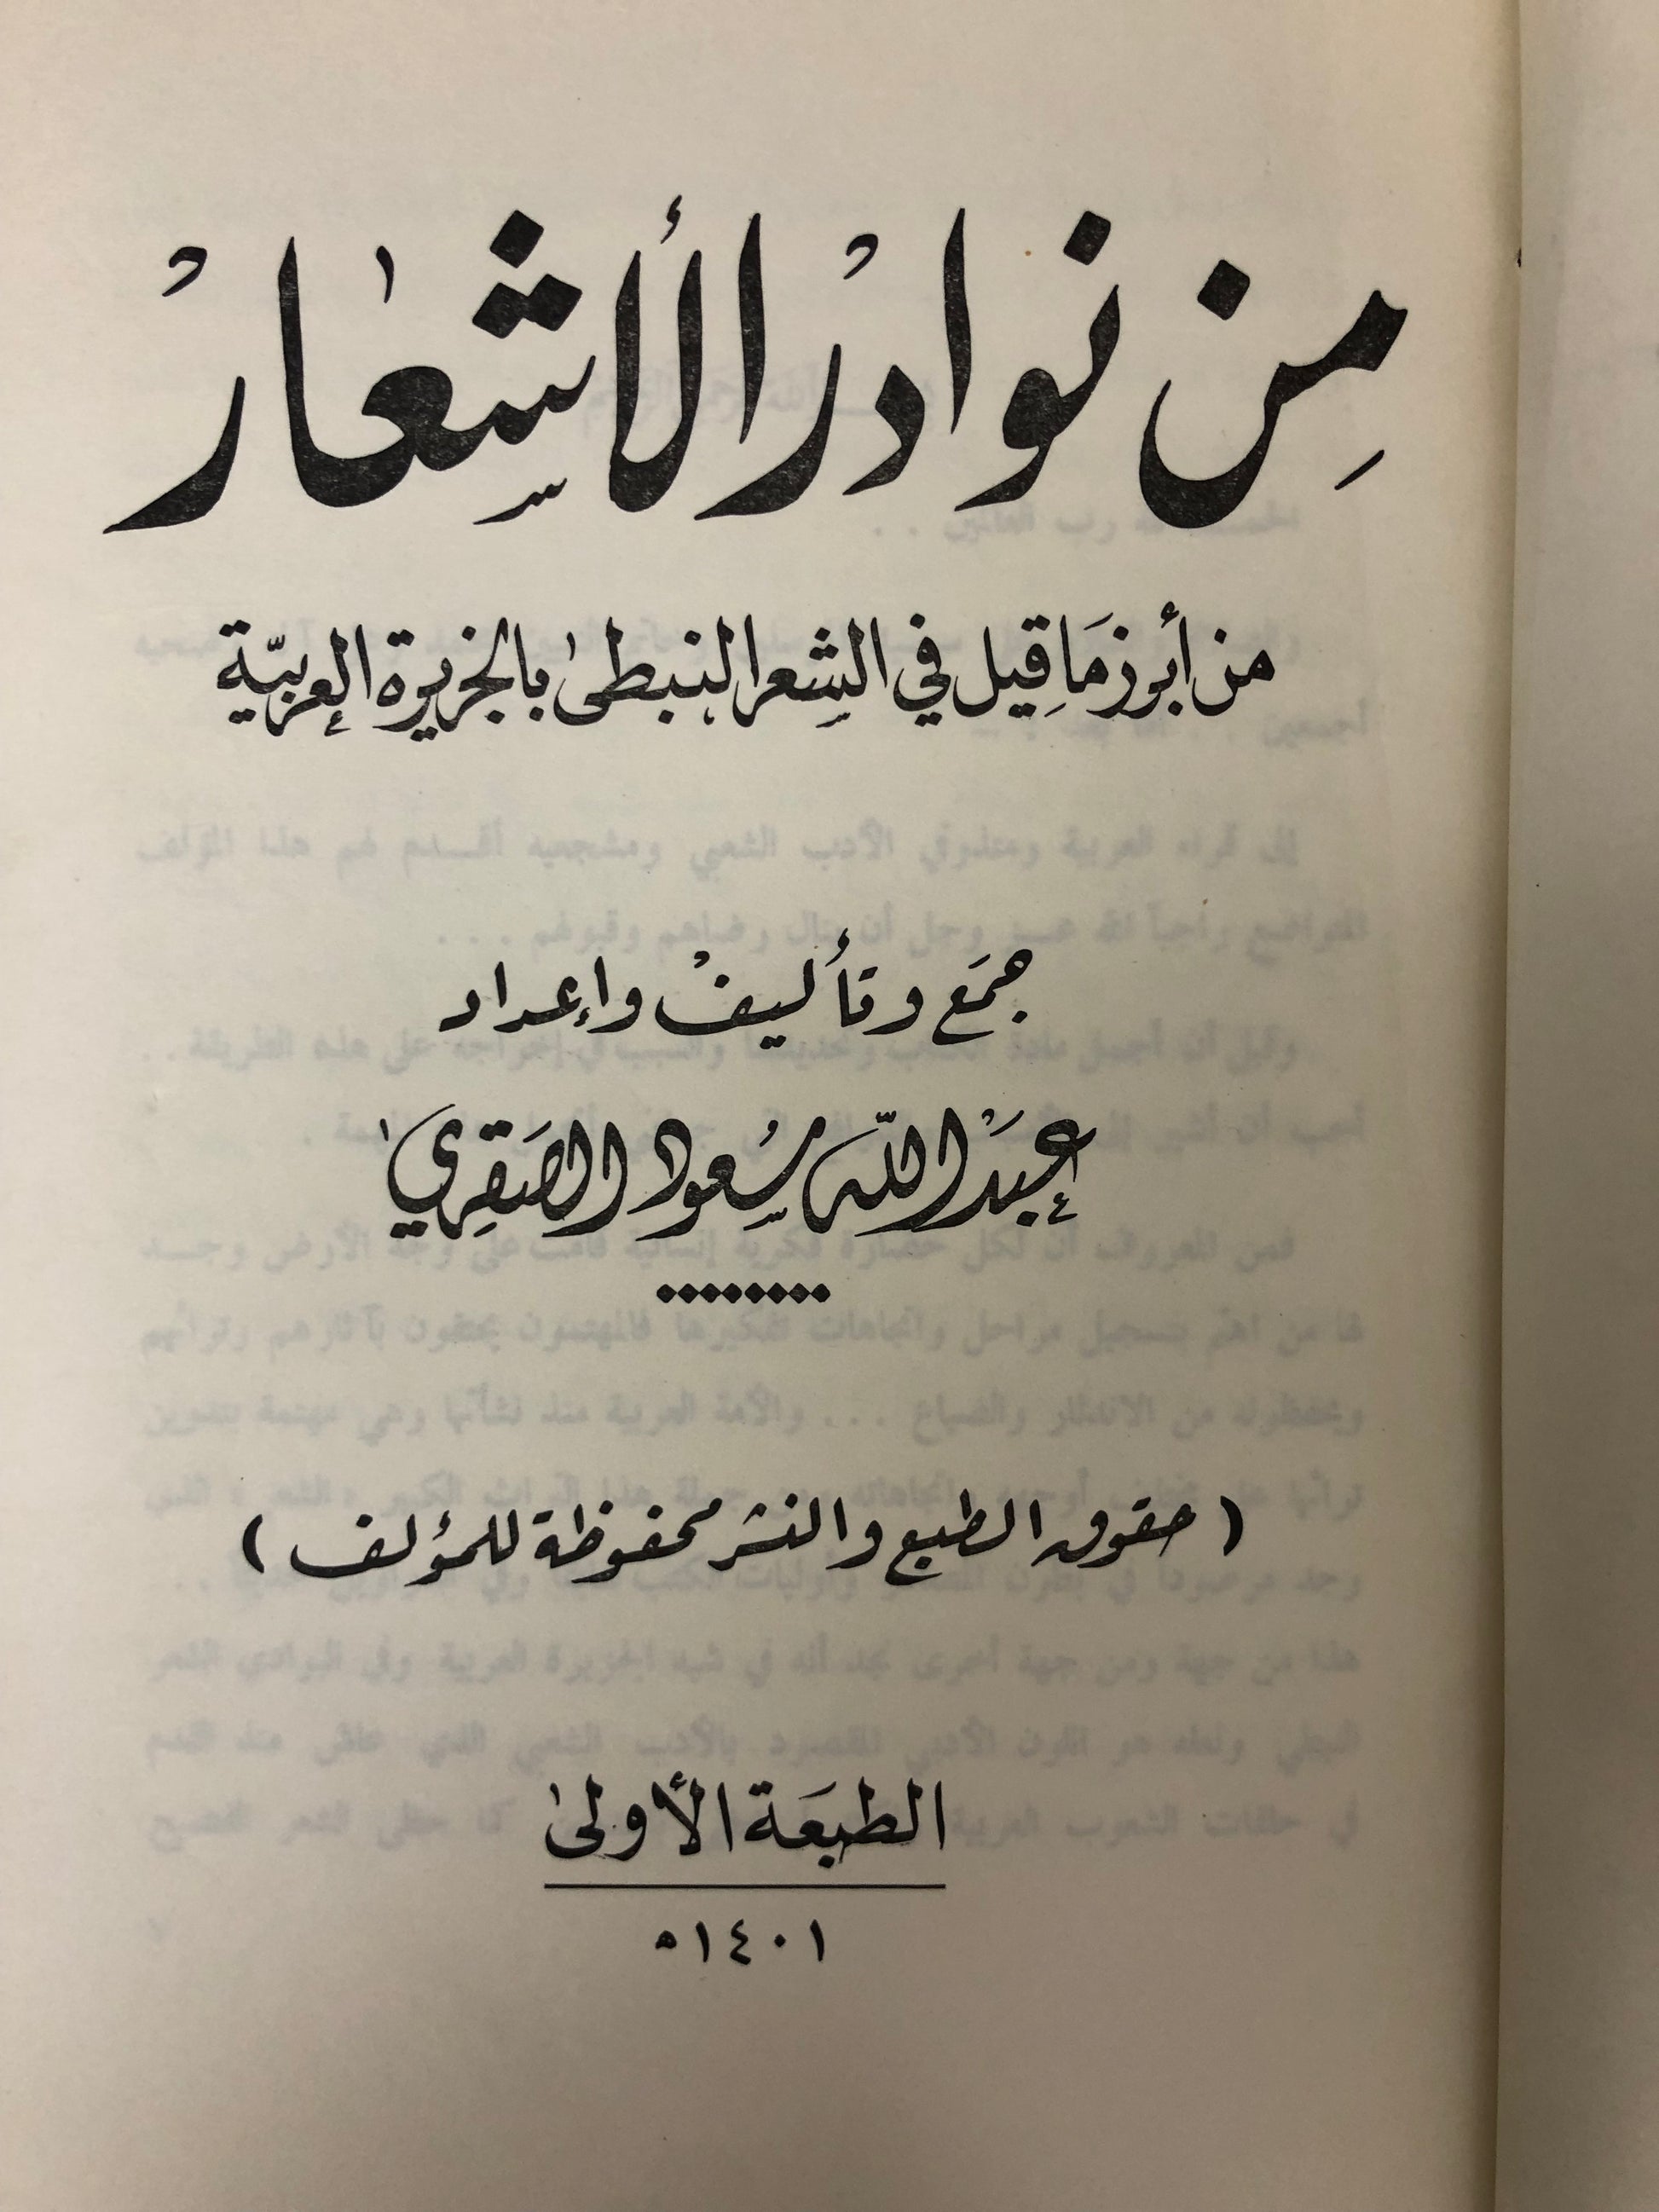 من نوادر الأشعار
من أبرز ما قيل في الشعر النبطي بالجزيرة العربية
جمع وتأليف وإعداد
عبد الله سعود الصقري
(حقوق الطبع والنشر محفوظة للمؤلف)
الطبعة الأولى
١٤٠١ه